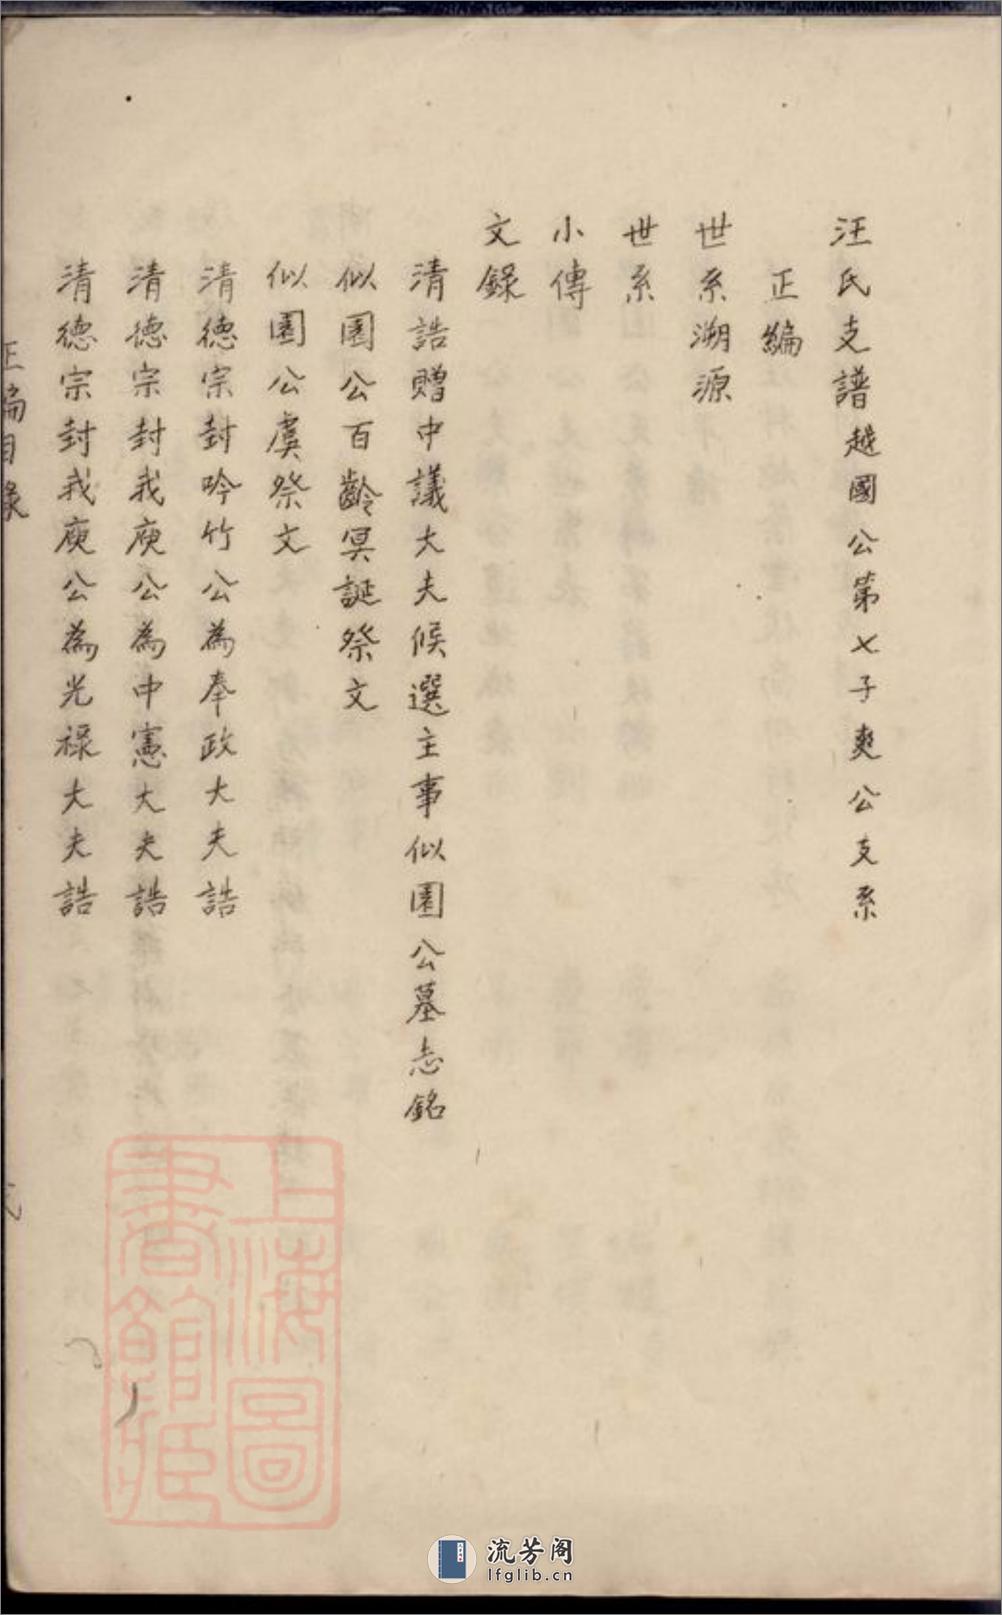 汪氏支譜越國公第七子爽公支系
正編
世系溯源
世系
小傳
文錄
清誥贈中議大夫候選主事似園公墓志銘
似園公百齡冥誕祭文
似園公虞祭文
清德宗封吟竹公為奉政大夫誥
清德宗封我庾公為中憲大夫誥
清德宗封我庾公為光祿大夫誥
正編目錄
弍
上海圖書館藏
流芳阁
lfglib.cn